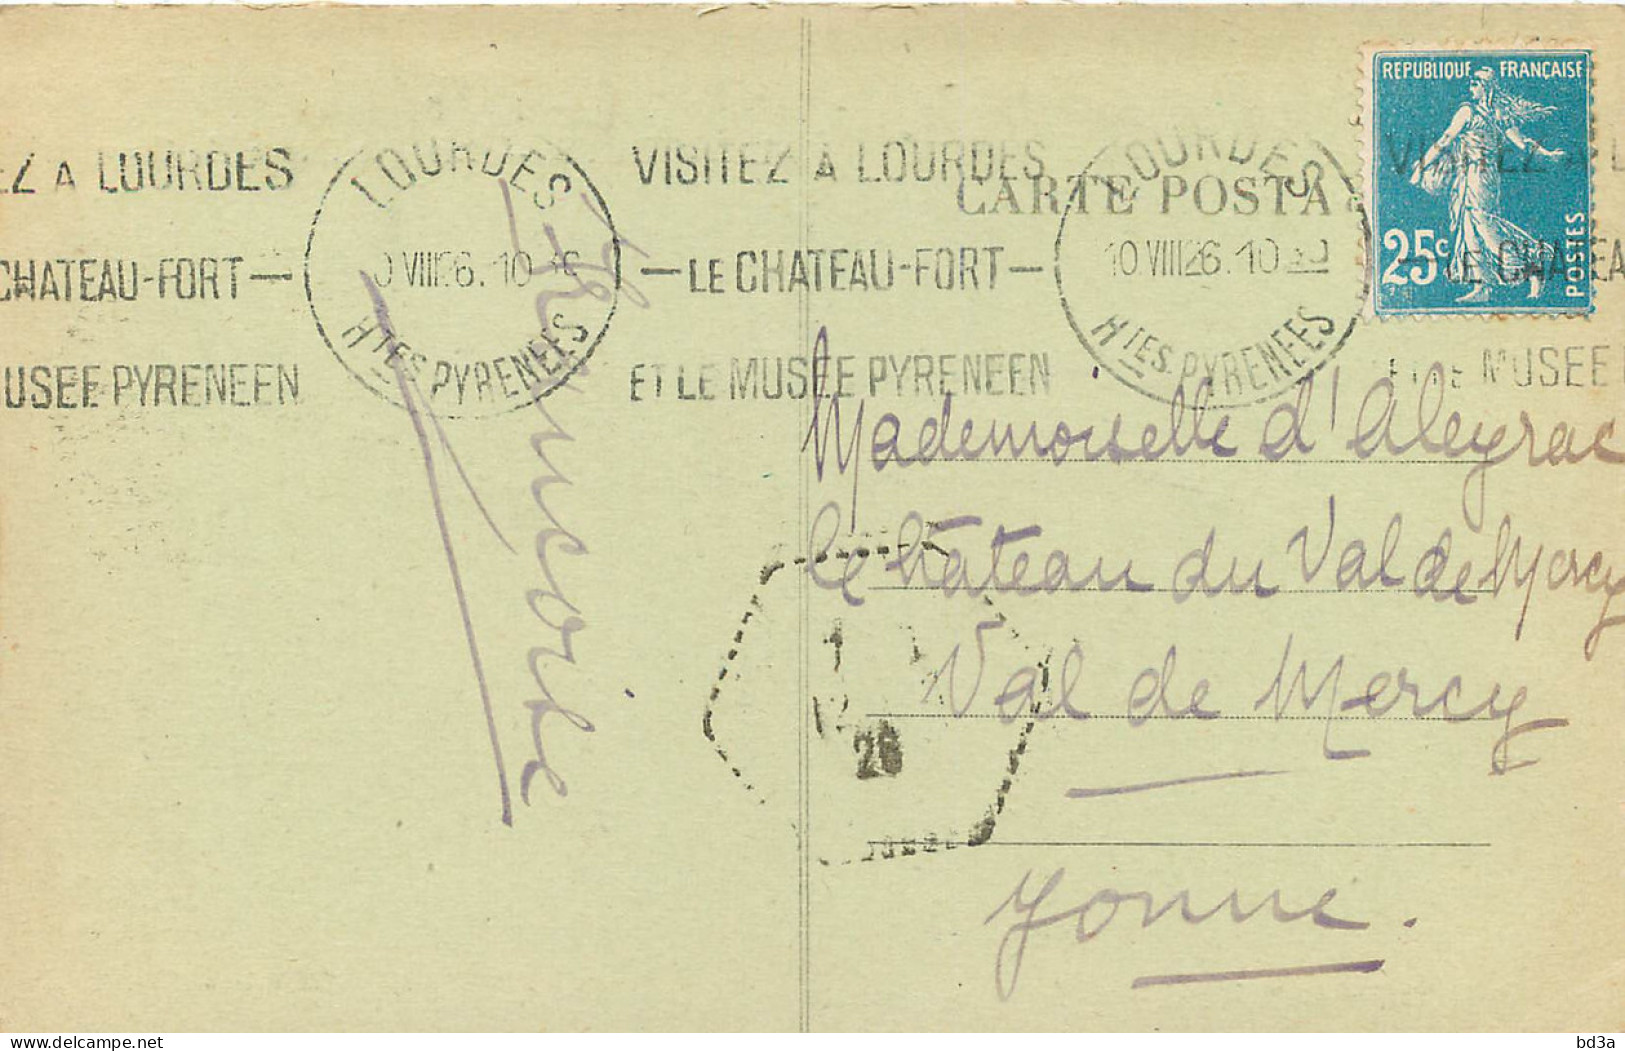 EZ A LOURDES
CHATEAU-FORT —
USEE PYRENEEN
LOURDES
VIII 26. 10
HTES PYRENEES
VISITEZ A LOURDES
— LE CHATEAU-FORT —
ET LE MUSEE PYRENEEN
CARTE POSTA
LOURDES
10 VIII 26. 10 30
HTES PYRENEES
REPUBLIQUE FRANÇAISE
25c
POSTES
VISITEZ A L
— LE CHATEA
ET LE MUSEE
Mademoiselle d'Aleyrac
le château du Val de Mercy
Val de Mercy
Yonne.
1
26
delcampe.net
bd3a